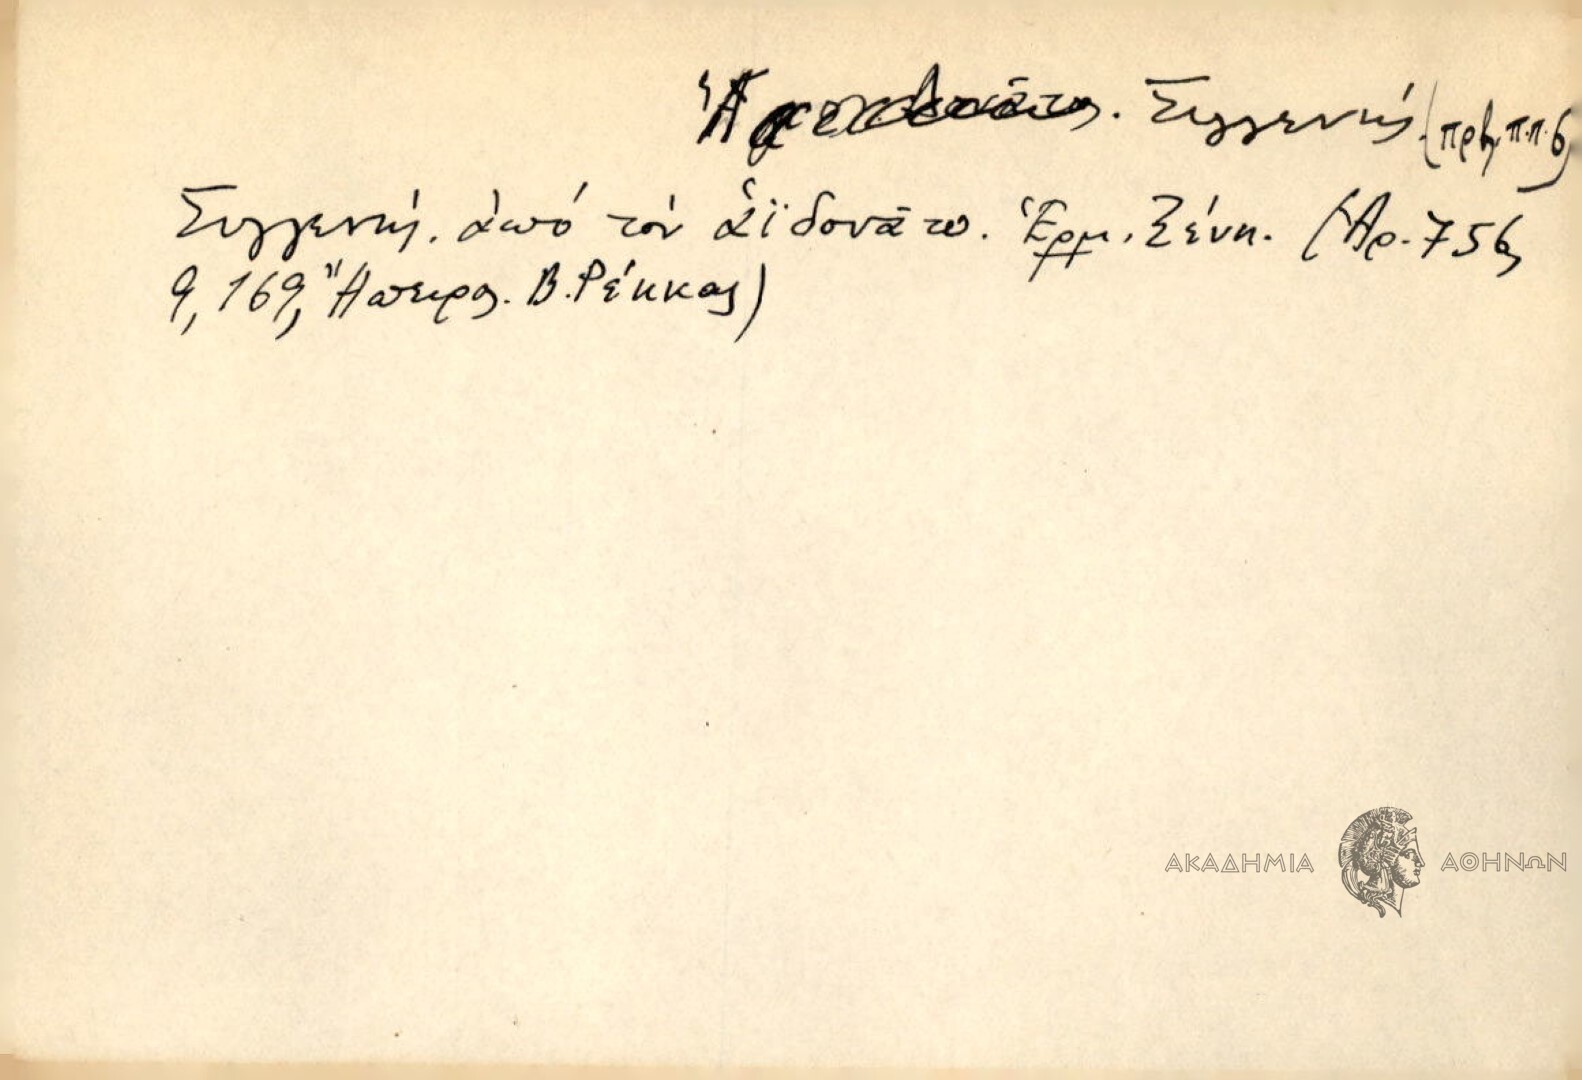 Συγγενής (πρβ. π.π. 6)
Συγγενής. ἀπό τόν ἁϊδονᾶτο. Ἑρμ. Ξένη. (Ἀρ. 756,
9, 169, Ἤπειρος. Β. Ρέκκας)
ΑΚΑΔΗΜΙΑ ΑΘΗΝΩΝ